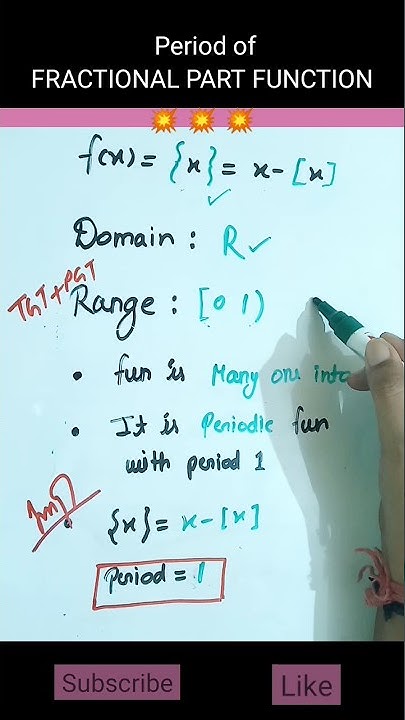 Period of
FRACTIONAL PART FUNCTION
f(x) = {x} = x - [x]
Domain : R ✓
TGT+PGT
Range : [0 1)
• fun is Many one into
• It is Periodic fun
with period 1
Imp
{x} = x - [x]
Period = 1
Subscribe
Like